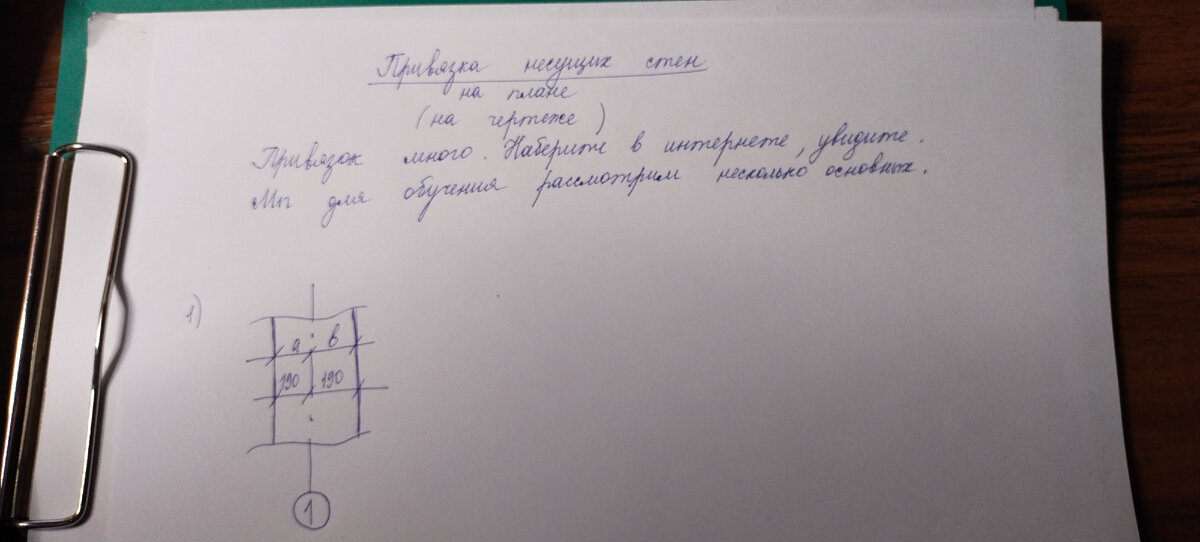 Привязка несущих стен
на плане
(на чертеже)
Привязок много. Наберите в интернете, увидите.
Мы для обучения рассмотрим несколько основных.
1)
а в
190 190
1